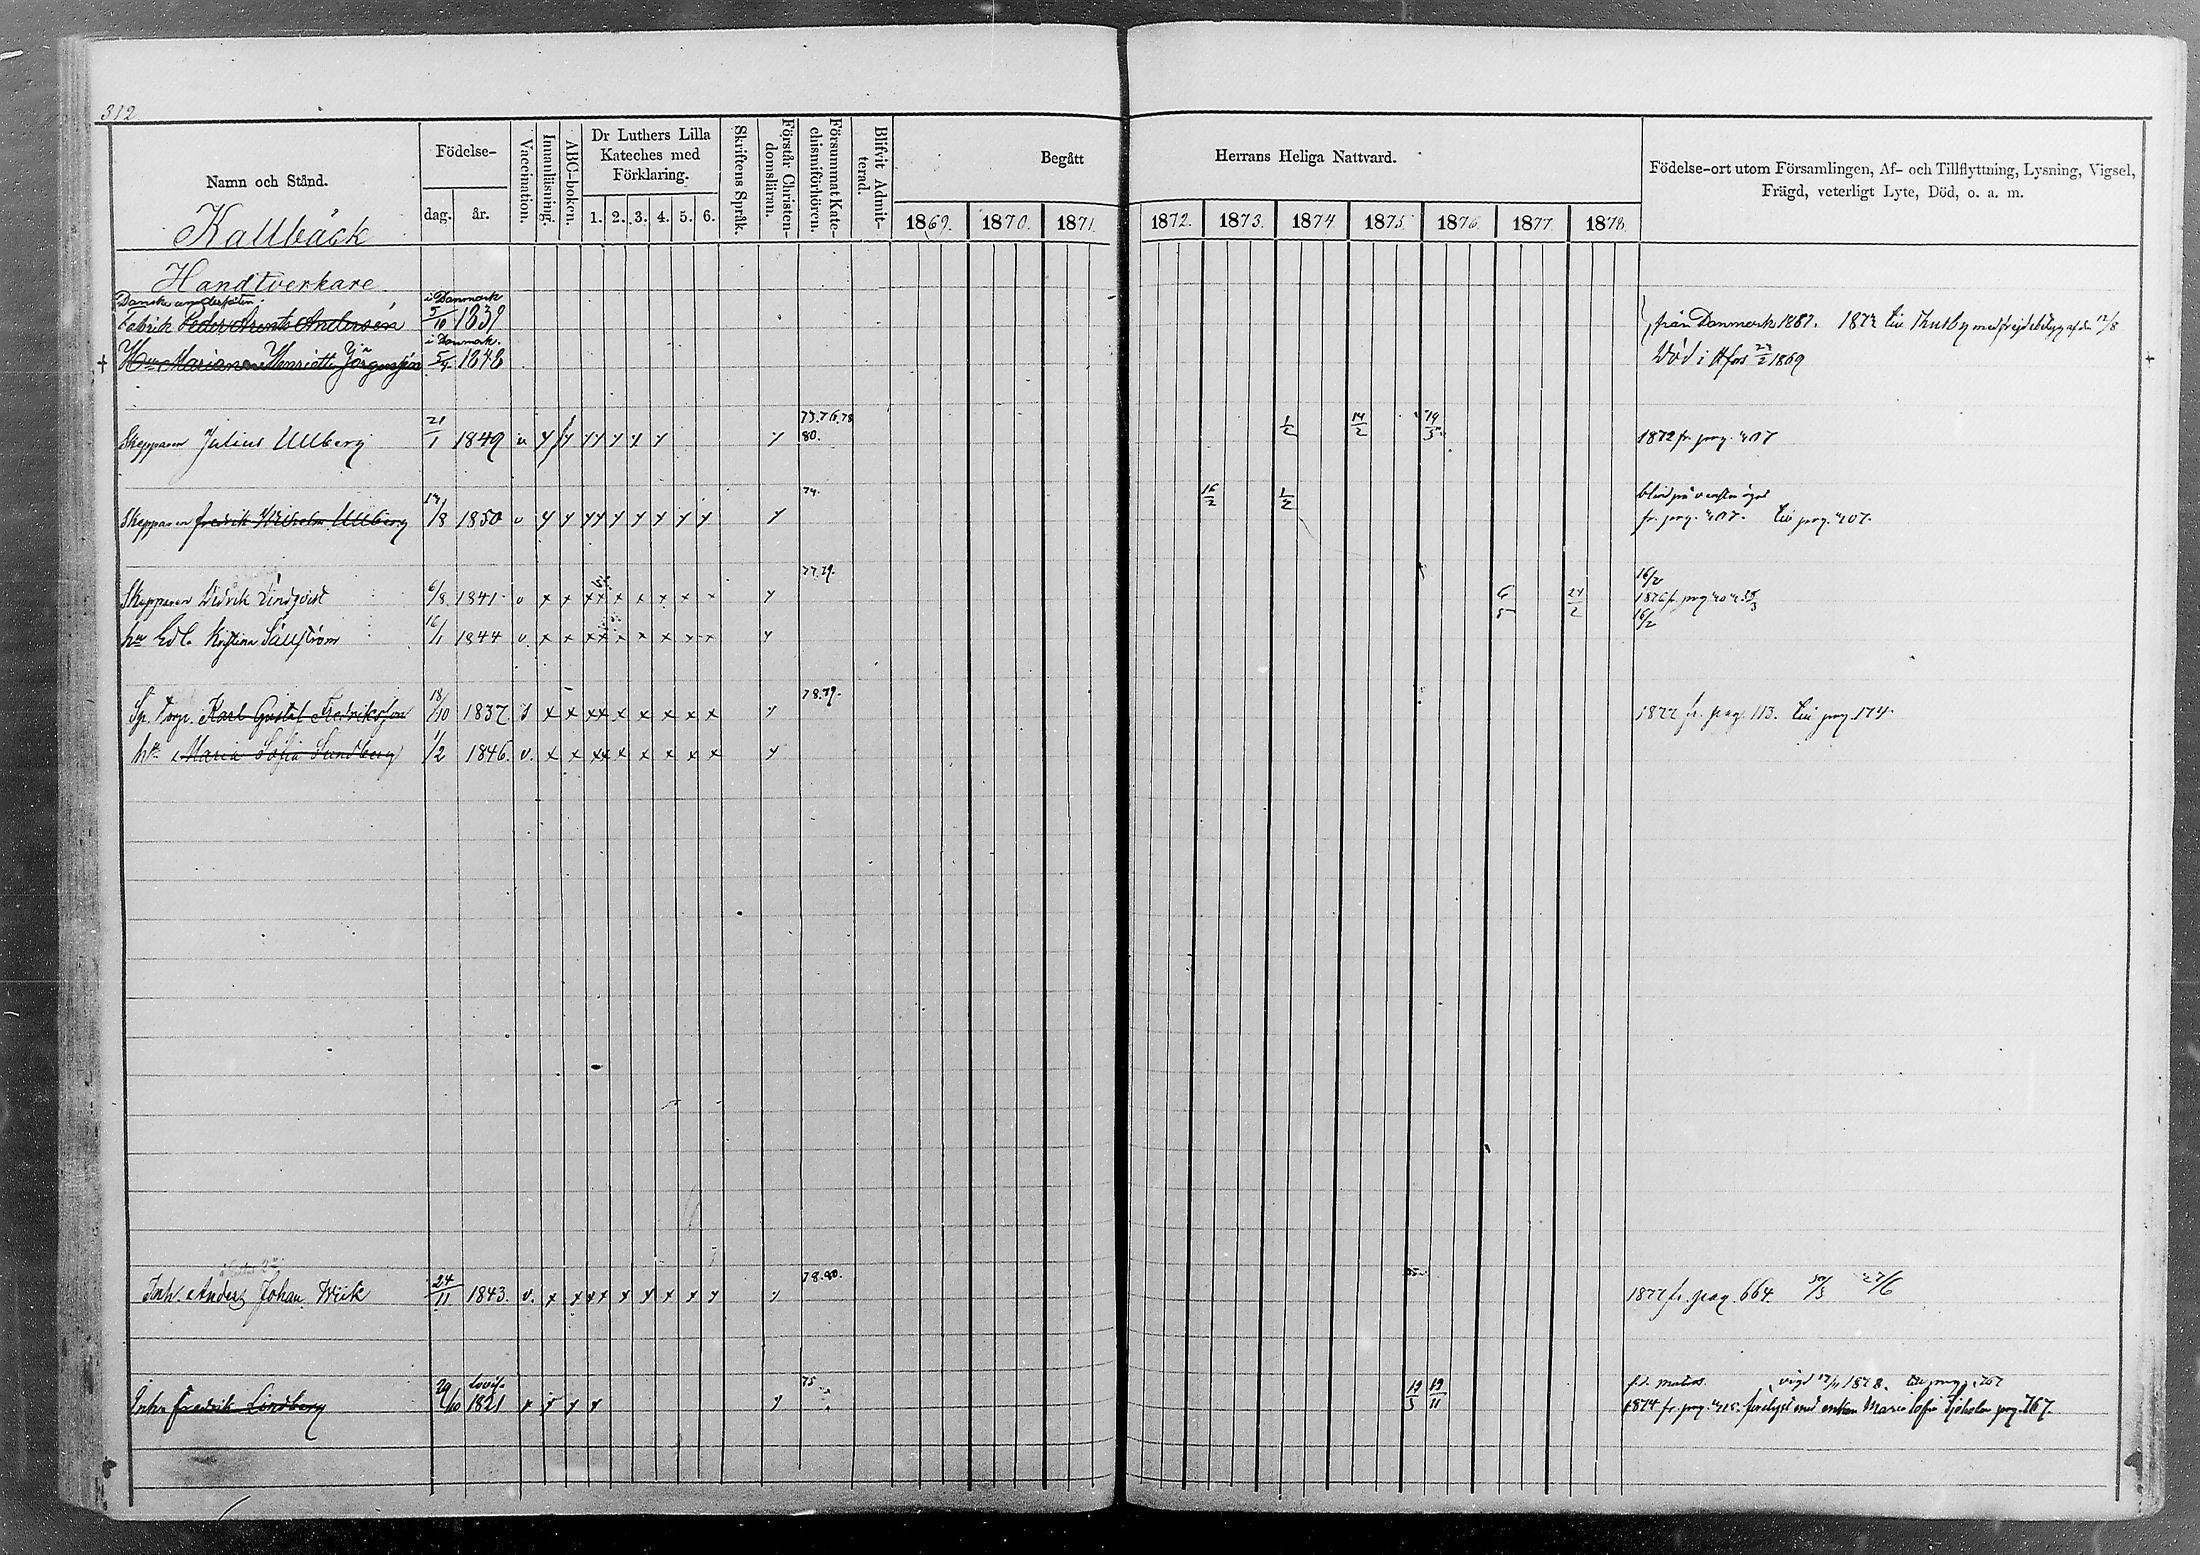 312
Namn och Stånd.
Födelse-
dag. år.
Vaccination.
Innanläsning.
ABC-boken.
Dr Luthers Lilla
Kateches med
Förklaring.
1. 2. 3. 4. 5. 6.
Skriftens Språk.
Förstår Christen-
domsläran.
Försummat Kate-
chismiförhören.
Blifvit Admit-
terad.
Begått Herrans Heliga Nattvard.
1869. 1870. 1871. 1872. 1873. 1874 1875. 1876. 1877. 1878.
Födelse-ort utom Församlingen, Af- och Tillflyttning, Lysning, Vigsel,
Frägd, veterligt Lyte, Död, o. a. m.
Kallbäck
Handtverkare
i Danmark
Fabrik Peder Arents Andersén 5/10 1839 från Danmark 1867. 12/8
i Danmark.
Hu Mariane Henriette 5/4 1848 Död i Hfors 1869
73.76.78
Skepparen Julius Ullberg 21/1 1849 v y y y y y y y y 80. 1/2 14/2 14/5 1872 fr. pag. 407
74. 16/2 1/2
Skepparen Fredrik Wilhelm Ullberg /8 1850 v y y y y y y y y y y fr. pag. 407. till pag. 407.
77.79. 16/2
Skepparen Didrik Lindqvist 6/8 1841 v x x x x x x x x x y 6/5 24/2 1876 fr. pag
hu Kristina 16/1 1844 v. x x x x x x x x x y 16/2
78.79.
Karl Gustaf Fredriksson 18/10 1837. x x x x x x x x x y 1877 fr. pag. 113. till pag. 174.
hu Maria Sofia Sundberg 1/2 1846. v. x x x x x x x x x y
78.80.
Inh. Anders Johan Wiik 24/11 1843. v. x x x x x x x x y y 1877 fr. pag. 664. 27/6
Lovisa 75 vigd 1878. till pag. 767
Inh. Fredrik Lindberg 29/10 1821 19/5 19/11 1874 fr. pag. med enkan Maria Sofia pag. 767.